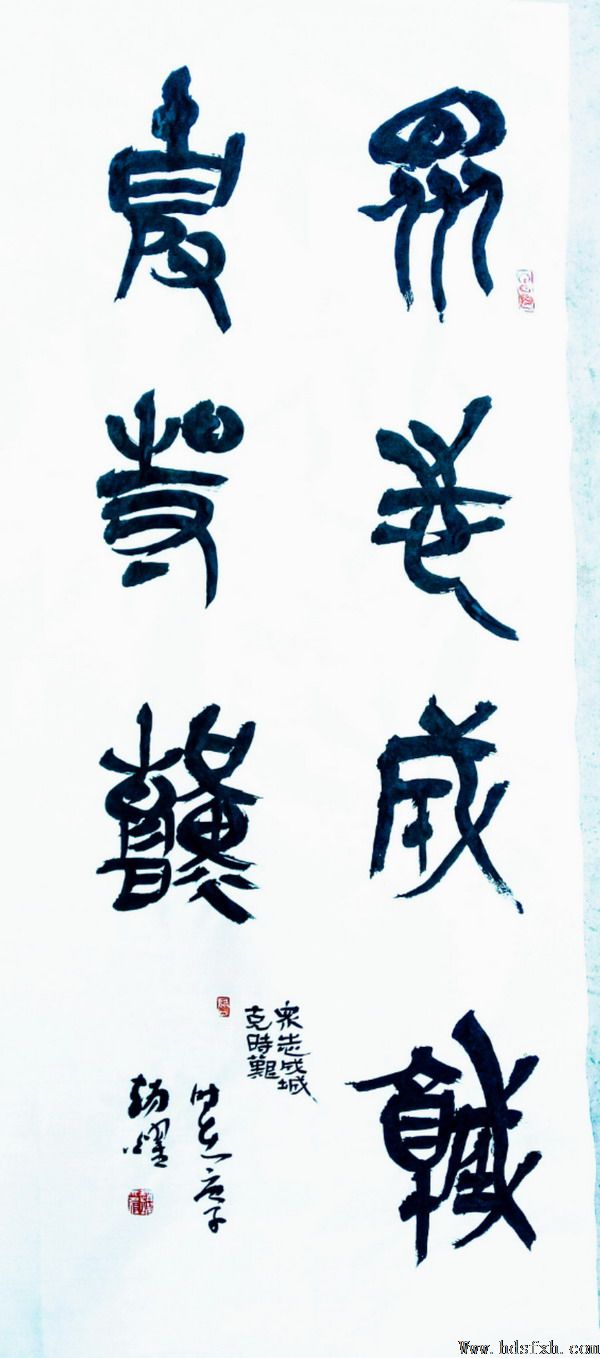 眾志成城
克時艱
眾志成城
克時艱
時在庚子
楊耀
Www.hdsfxh.com